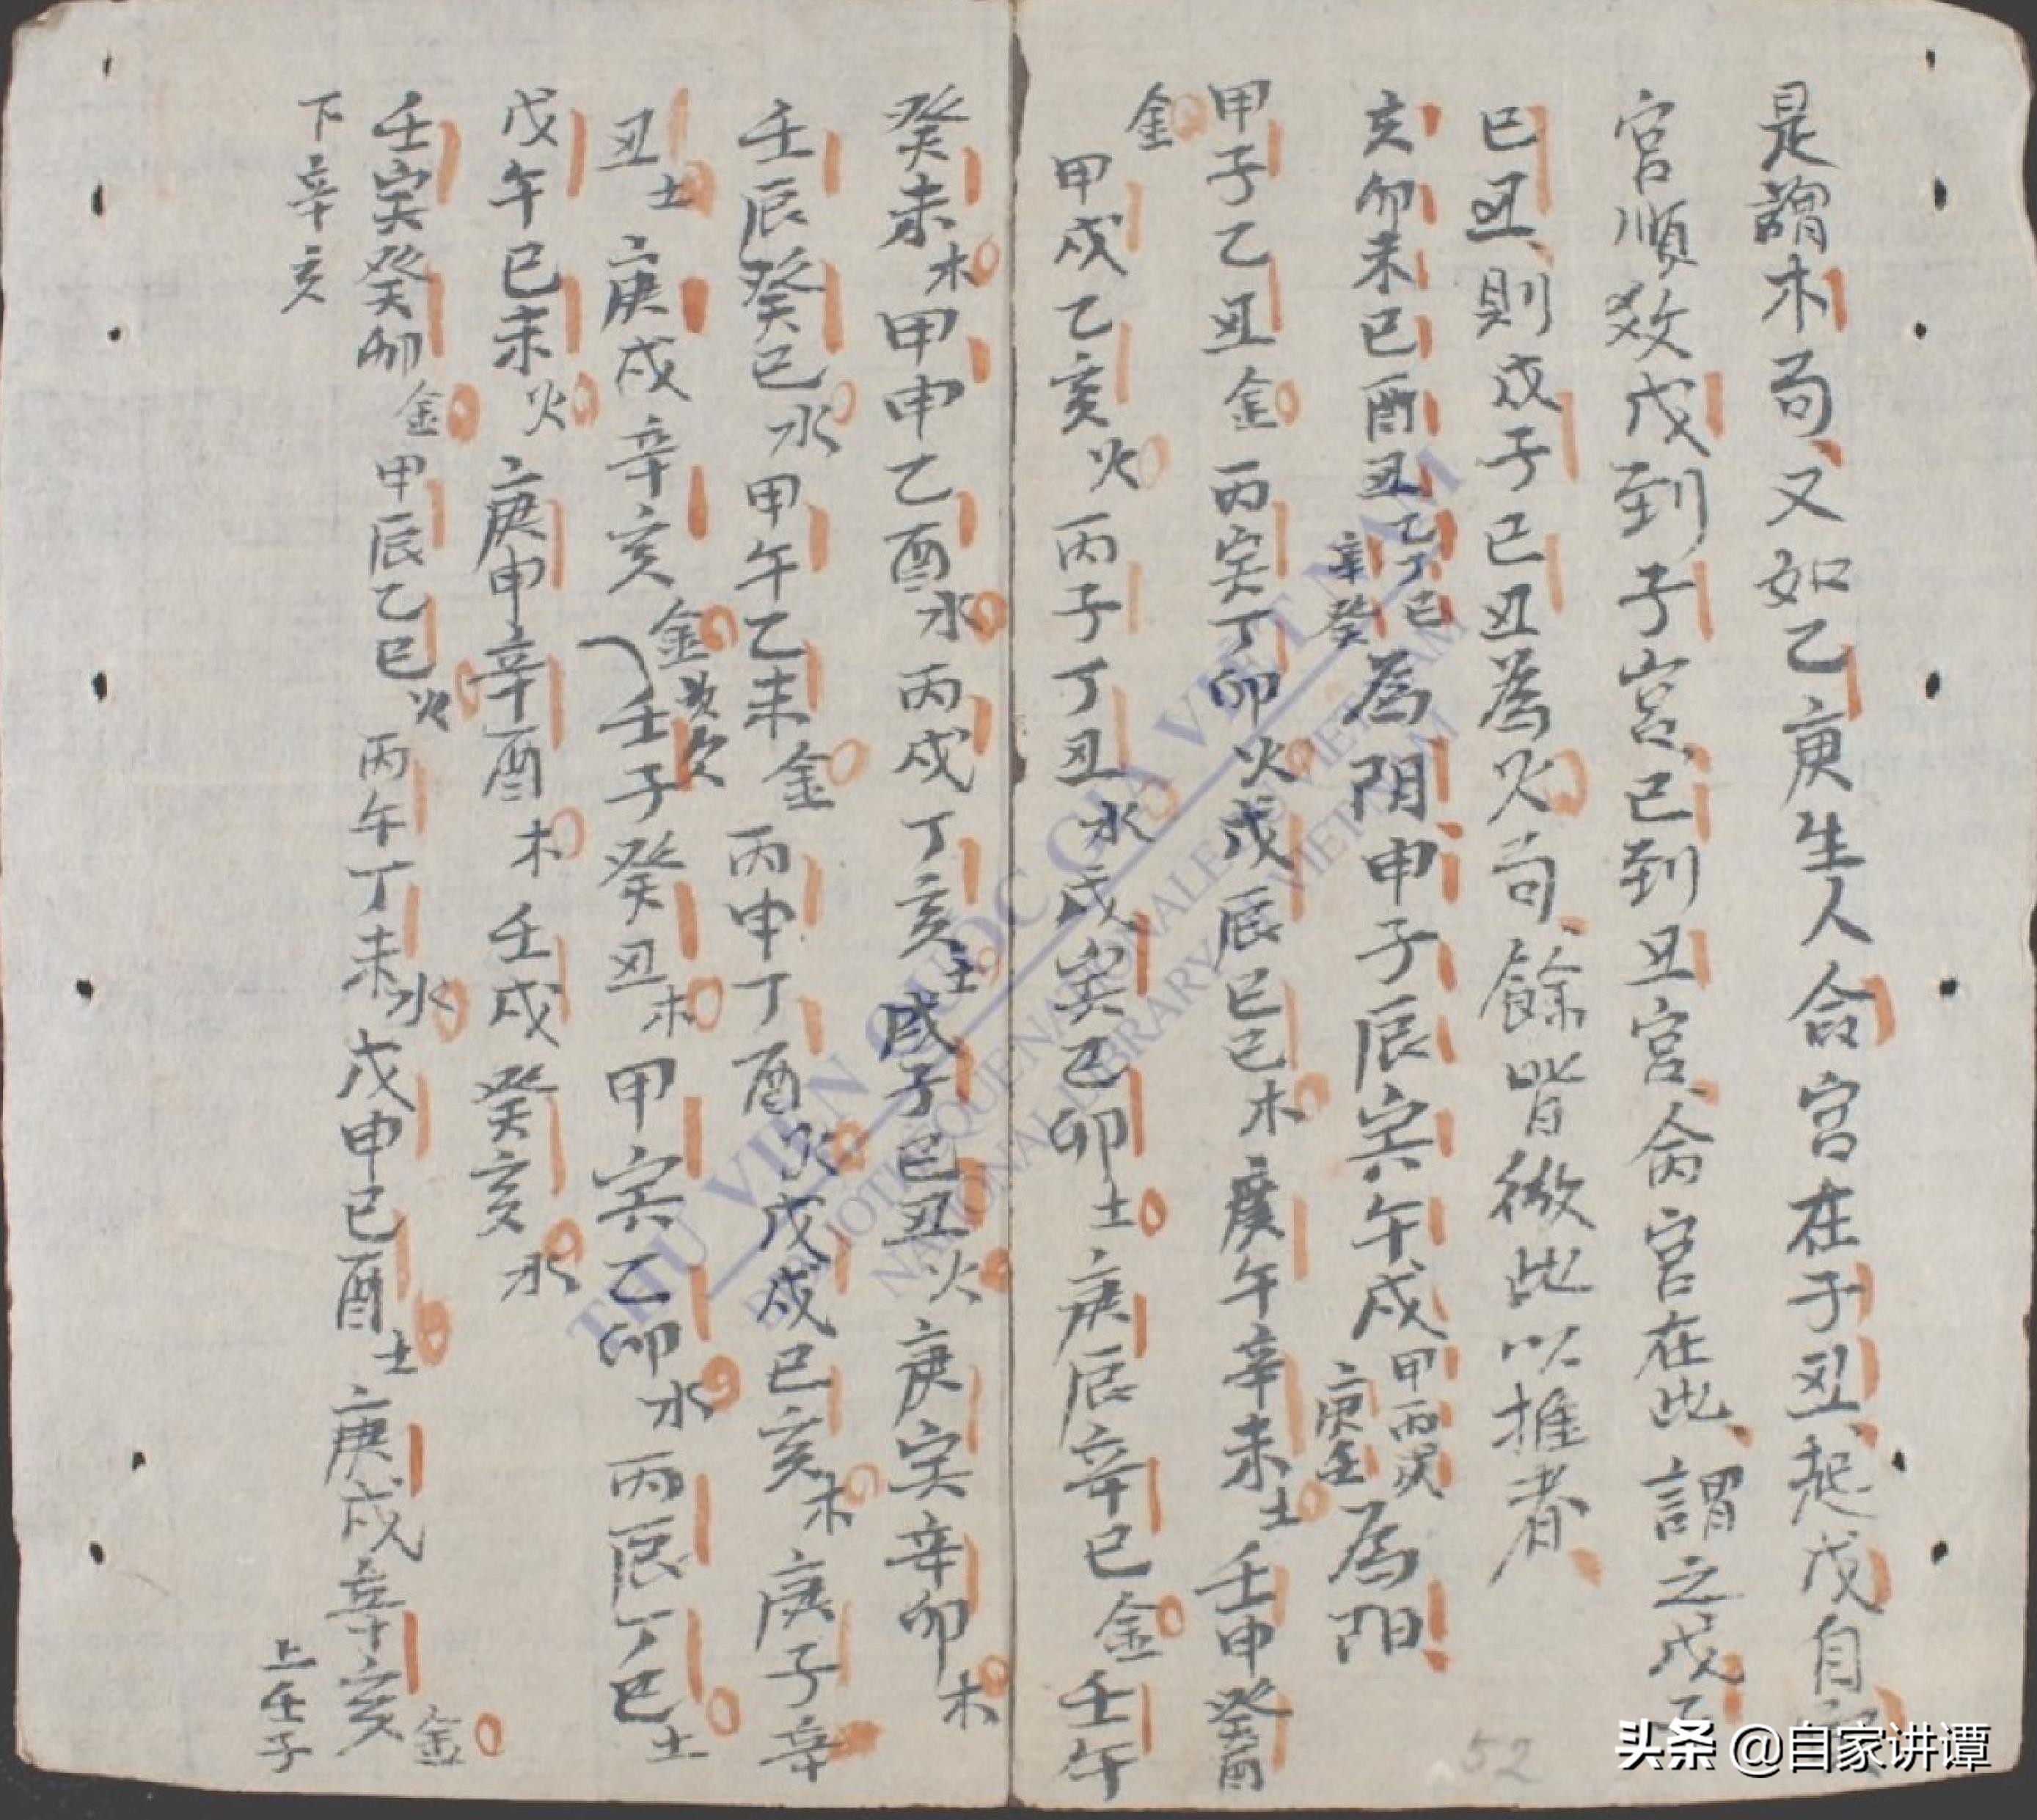 是謂木局、又如乙庚生人合宮在子丑、起戊自寅
宮順数戊到子宮、己到丑宮、命宮在此、謂之戊子
己丑、則戊子己丑為火局、餘皆倣此以推者、
亥卯未巳酉丑乙丁己辛癸為阴、申子辰寅午戌甲丙戊庚壬為阳
甲子乙丑金丙寅丁卯火戊辰己巳木庚午辛未土壬申癸酉
金
甲戌乙亥火丙子丁丑水戊寅己卯土庚辰辛巳金壬午
癸未木甲申乙酉水丙戌丁亥土戊子己丑火庚寅辛卯木
壬辰癸巳水甲午乙未金丙申丁酉火戊戌己亥木庚子辛
丑土庚戌辛亥金壬子癸丑木甲寅乙卯水丙辰丁巳土
戊午己未火庚申辛酉木壬戌癸亥水
壬寅癸卯金甲辰乙巳火丙午丁未水戊申己酉土庚戌辛亥金
下辛亥
上壬子
THU VIEN QUOC GIA VIET NAM
BIBLIOTHEQUE NATIONALE DU VIETNAM
NATIONAL LIBRARY OF VIETNAM
52
头条 @自家讲谭